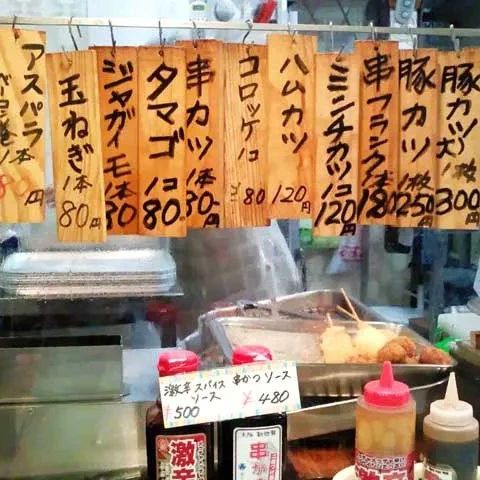 アスパラ
ベーコン巻1本
80円
玉ねぎ1本
80円
ジャガイモ1本
80
タマゴ1コ
80.
串カツ1本
80-
コロッケ1コ
¥80
ハムカツ
120円
ミンチカツ1コ
120円
串フランク1本
180
豚カツ1枚
250円
豚カツ大1枚
300円
激辛スパイス
ソース
¥500
串かつソース
¥480
激辛
大阪 新世界
串かつ